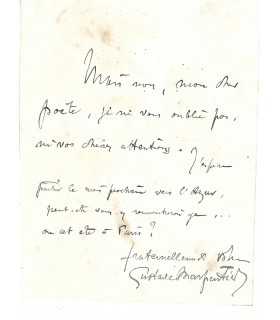 Mais non, mon cher
poète, je ne vous oublie pas,
ni vos chères attentions. J'espère
partir le mois prochain vers l'Azur,
peut-être vous y rencontrerai-je,...
ou cet été à Paris?
fraternellement vôtre
Gustave Charpentier